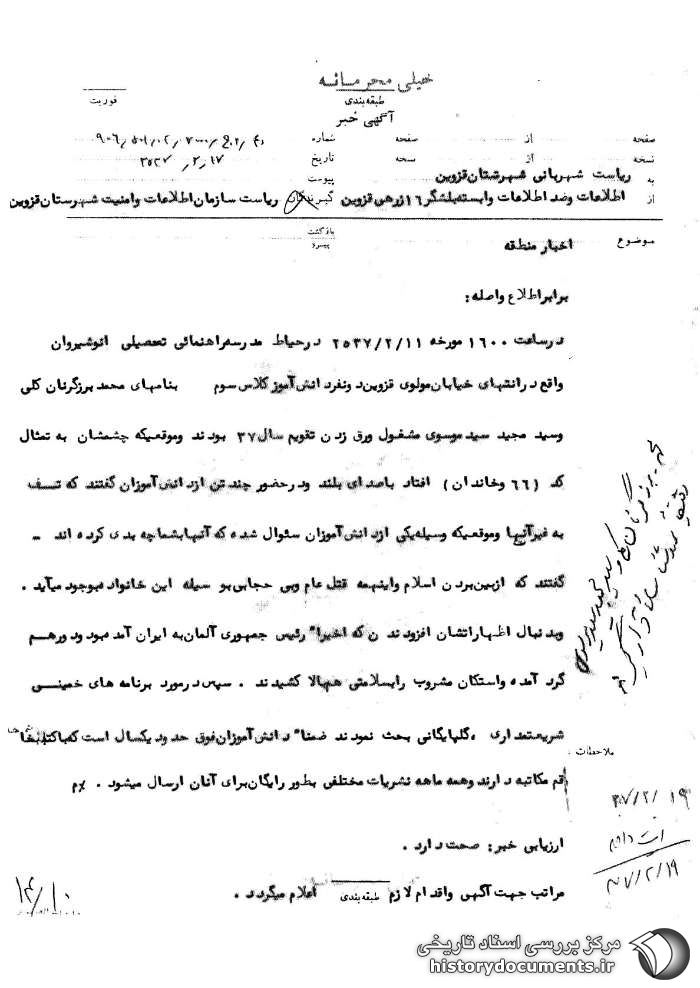 خیلی محرمانه
طبقه‌بندی
فوریت
آگهی خبر
صفحه از صفحه شماره
نسخه از نسخه تاریخ ۲۵۳۷٫۲٫۱۷
به ریاست شهربانی شهرستان قزوین پیوست
از اطلاعات وضد اطلاعات وابسته بلشگر ۱۶ زرهی قزوین گیرندگان ریاست سازمان اطلاعات وامنیت شهرستان قزوین
بازگشت
پیرو
موضوع اخبار منطقه
برابر اطلاع واصله:
درساعت ۱۶۰۰ مورخه ۲۵۳۷/۲/۱۱ درحیاط مدرسه راهنمائی تحصیلی انوشیروان
واقع در انتهای خیابان مولوی قزوین دونفر دانش آموز کلاس سوم بنامهای محمد برزگرنان کلی
وسید مجید سید موسوی مشغول ورق زدن تقویم سال ۳۷ بودند وموقعیکه چشمشان به تمثال
کد (۶۶ وخاندان) افتاد باصدای بلند ودرحضور چند تن از دانش آموزان گفتند که تف
به غیر آنها وموقعیکه وسیله یکی از دانش آموزان سئوال شده که آنها بشما چه بدی کرده اند -
گفتند که ازبین بردن اسلام واینهمه قتل عام وبی حجابی بو سیله این خانواده بوجود میآید .
وبدنبال اظهاراتشان افزودند که اخیرا" رئیس جمهوری آلمان به ایران آمده بود ودورهم
گرد آمده واستکان مشروب رابسلامتی هم بالا کشیدند . سپس درمورد برنامه های خمینی
شریعتمداری ،گلپایگانی بحث نمودند ضمنا" دانش آموزان فوق حدود یکسال است که با
ملاحظات
قم مکاتبه دارند وهمه ماهه نشریات مختلفی بطور رایگان برای آنان ارسال میشود . %م
۳۷/۲/۱۹
ارزیابی خبر: صحت دارد .
۳۷/۲/۱۹
مراتب جهت آگهی واقدام لازم اعلام میگردد .
طبقه‌بندی
۱۴/۱۰
مرکز بررسی اسناد تاریخی
historydocuments.ir